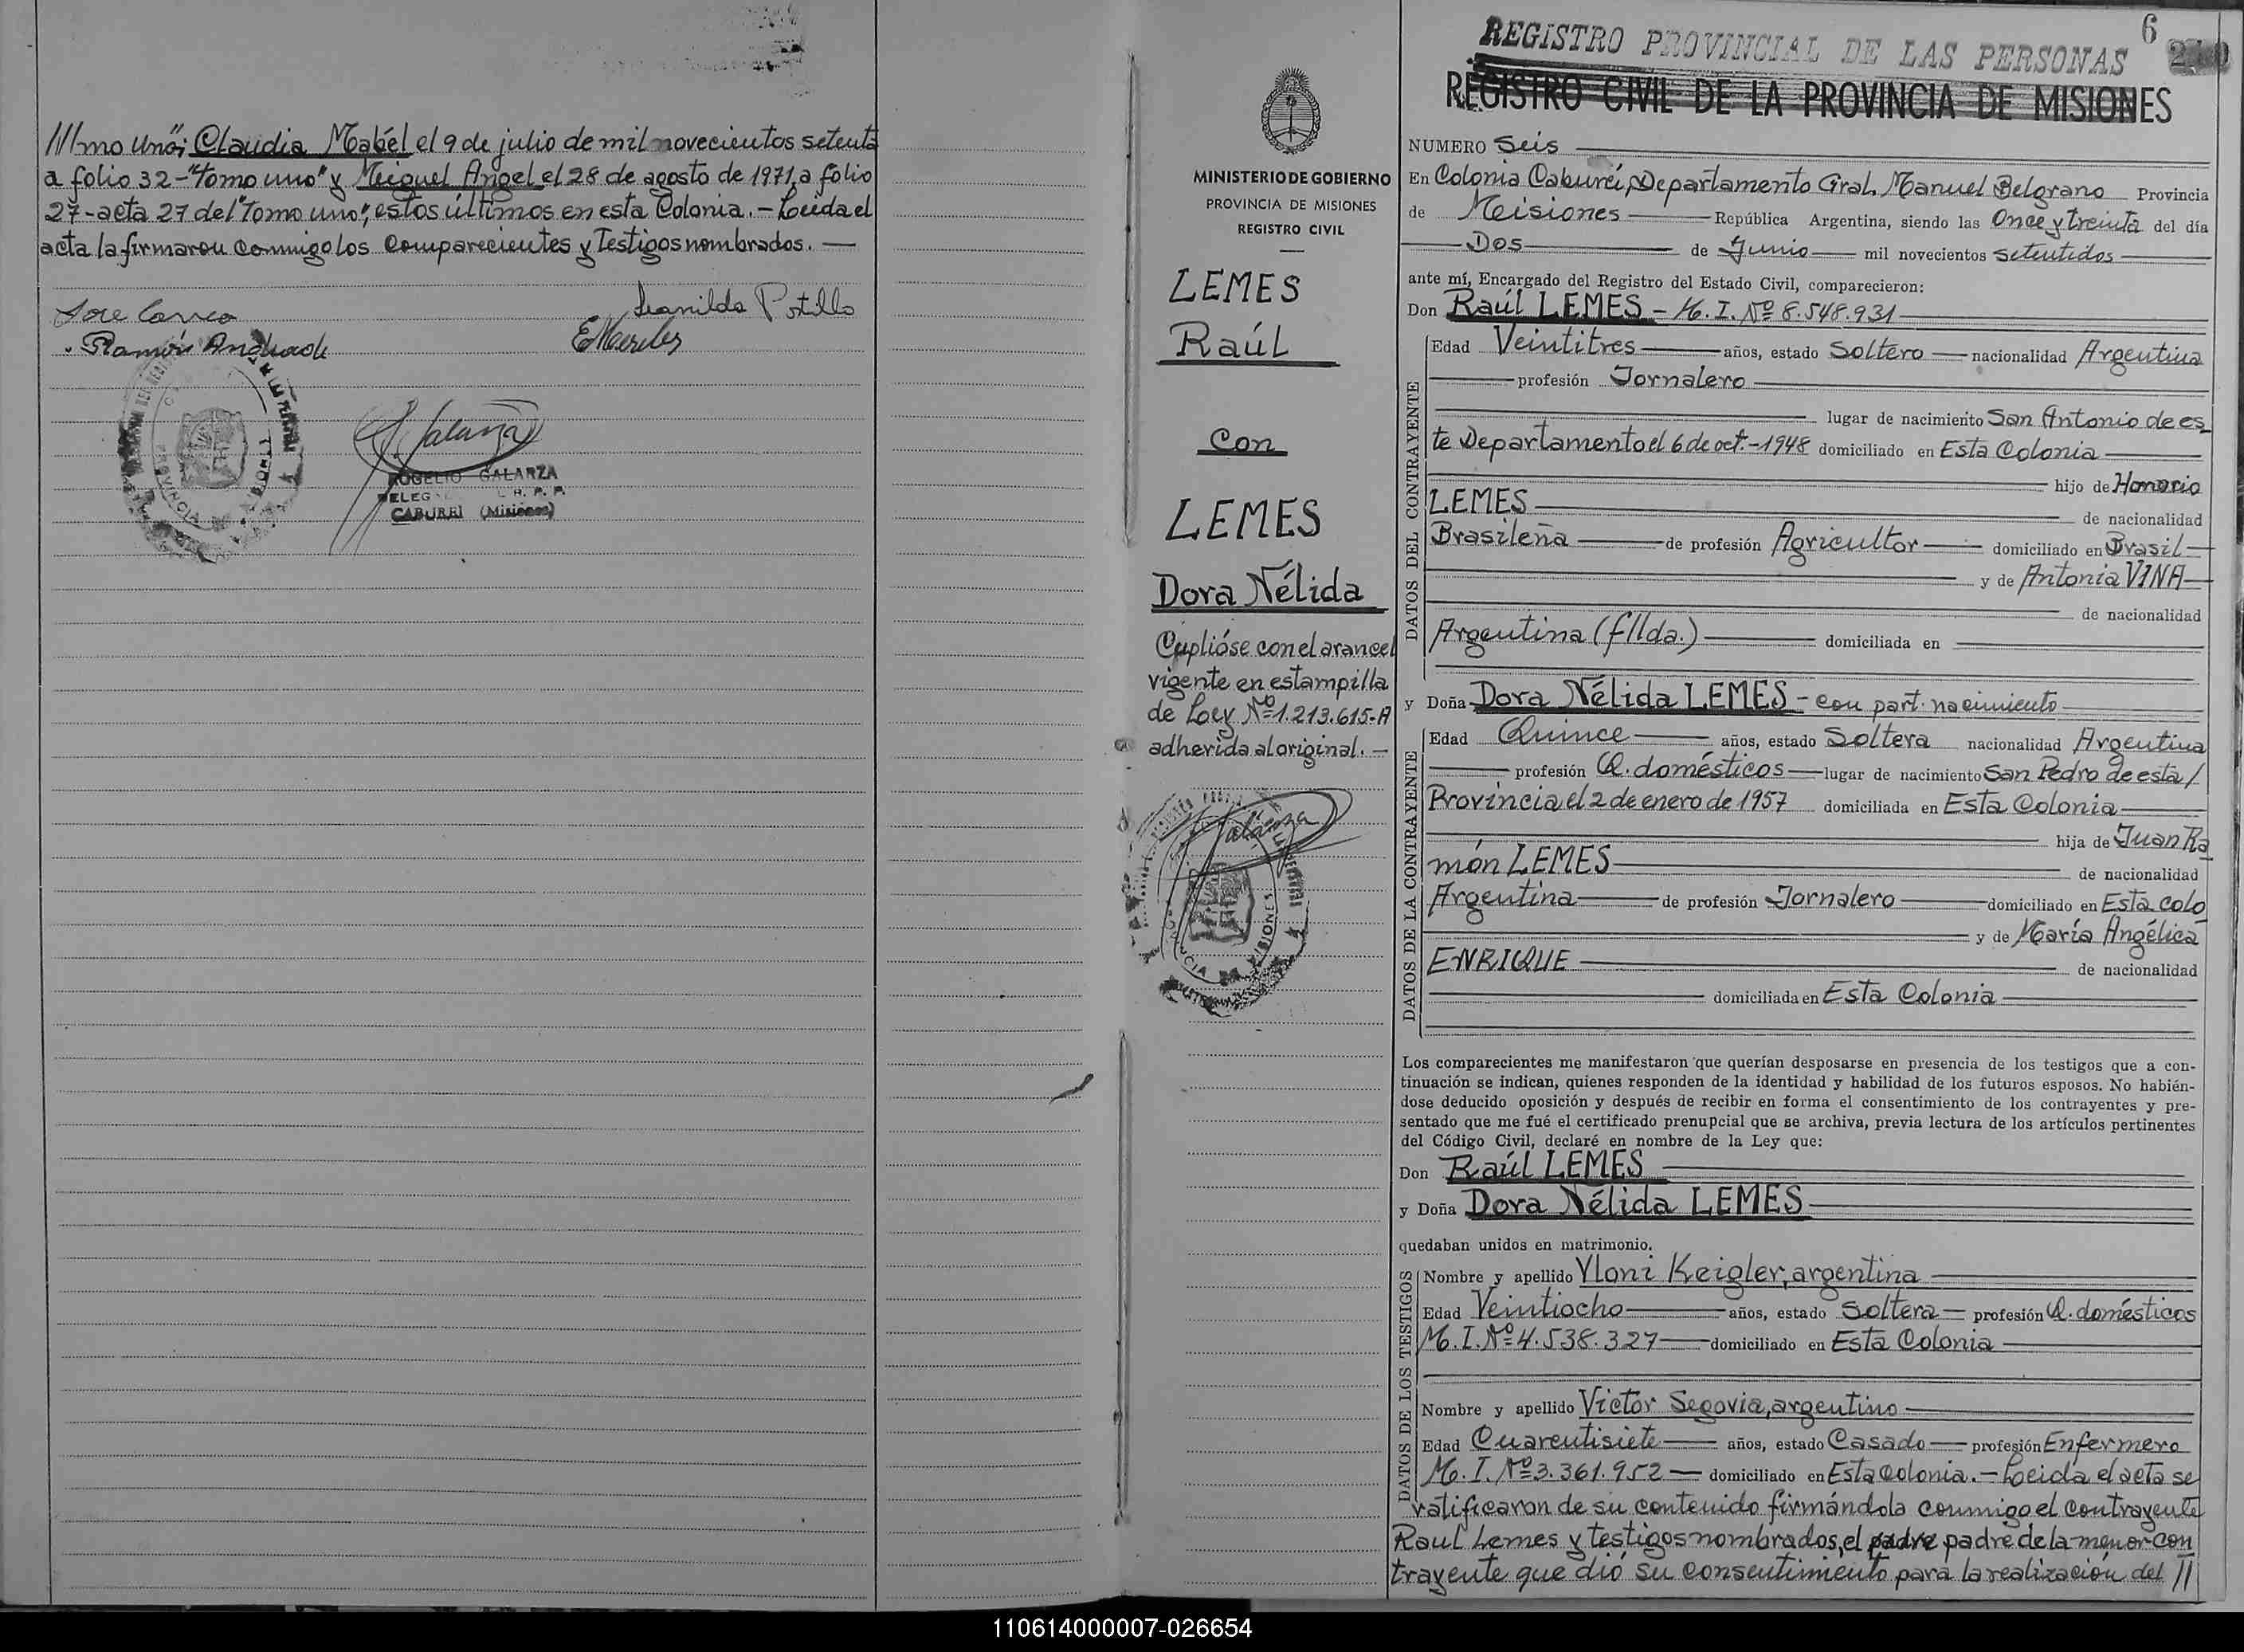 ///mo uno"; Claudia Mabél el 9 de julio de mil novecientos setenta
a folio 32-"tomo uno" y Miguel Angel el 28 de agosto de 1971, a folio
27-acta 27 del "Tomo uno"; estos últimos en esta Colonia.- Leida el
acta la firmaron conmigo los comparecientes y Testigos nombrados. —
Leanilda Potillo
Ramón Andrade
Galarza
ROGELIO GALARZA
CABUREI (Misiones)
MINISTERIO DE GOBIERNO
PROVINCIA DE MISIONES
REGISTRO CIVIL
LEMES
Raúl
con
LEMES
Dora Nélida
Cuplióse con el arancel
vigente en estampilla
de Ley Nº 1.213.615-A
adherida al original. —
Galarza
6
REGISTRO PROVINCIAL DE LAS PERSONAS
REGISTRO CIVIL DE LA PROVINCIA DE MISIONES
NUMERO Seis
En Colonia Caburei, Departamento Gral. Manuel Belgrano Provincia
de Misiones República Argentina, siendo las Once y treinta del día
Dos de Junio mil novecientos setentidos
ante mí, Encargado del Registro del Estado Civil, comparecieron:
Don Raúl LEMES - M. I. Nº 8.548.931
DATOS DEL CONTRAYENTE
Edad Veintitres años, estado Soltero nacionalidad Argentina
profesión Jornalero
lugar de nacimiento San Antonio de es_
te Departamento el 6 de oct.-1948 domiciliado en Esta Colonia
hijo de Honorio
LEMES
de nacionalidad
Brasileña de profesión Agricultor domiciliado en Brasil
y de Antonia VINA
de nacionalidad
Argentina (fllda.) domiciliada en
y Doña Dora Nélida LEMES - con part. nacimiento
DATOS DE LA CONTRAYENTE
Edad Quince años, estado Soltera nacionalidad Argentina
profesión Q. domésticos lugar de nacimiento San Pedro de esta /
Provincia el 2 de enero de 1957 domiciliada en Esta Colonia
hija de Juan Ra
món LEMES
de nacionalidad
Argentina de profesión Jornalero domiciliado en Esta colo
y de María Angélica
ENRIQUE
de nacionalidad
domiciliada en Esta Colonia
Los comparecientes me manifestaron que querían desposarse en presencia de los testigos que a con-
tinuación se indican, quienes responden de la identidad y habilidad de los futuros esposos. No habién-
dose deducido oposición y después de recibir en forma el consentimiento de los contrayentes y pre-
sentado que me fué el certificado prenupcial que se archiva, previa lectura de los artículos pertinentes
del Código Civil, declaré en nombre de la Ley que:
Don Raúl LEMES
y Doña Dora Nélida LEMES
quedaban unidos en matrimonio.
DATOS DE LOS TESTIGOS
Nombre y apellido Yloni Keigler, argentina
Edad Veintiocho años, estado Soltera profesión Q. domésticos
M. I. Nº 4.538.327 domiciliado en Esta Colonia
Nombre y apellido Victor Segovia, argentino
Edad Cuarentisiete años, estado Casado profesión Enfermero
M. I. Nº 3.361.952 domiciliado en Esta Colonia. - Leida el acta se
ratificaron de su contenido firmándola conmigo el contrayente
Raul Lemes y testigos nombrados, el padre padre de la menor con
trayente que dió su consentimiento para la realización del //
110614000007-026654